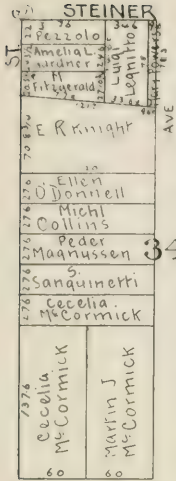 STEINER
ST
Pezzolo
Amelia L.
Gardner
M
Fitzgerald
Luigi
Legnitto
AVE
E R Knight
Ellen
O'Donnell
Michl
Collins
Peder
Magnussen
34
S.
Sanguinetti
Cecelia.
McCormick
Cecelia
McCormick
Martin J
McCormick
27 6
27 6
27 6
27 6
27 6
137 6
60
60